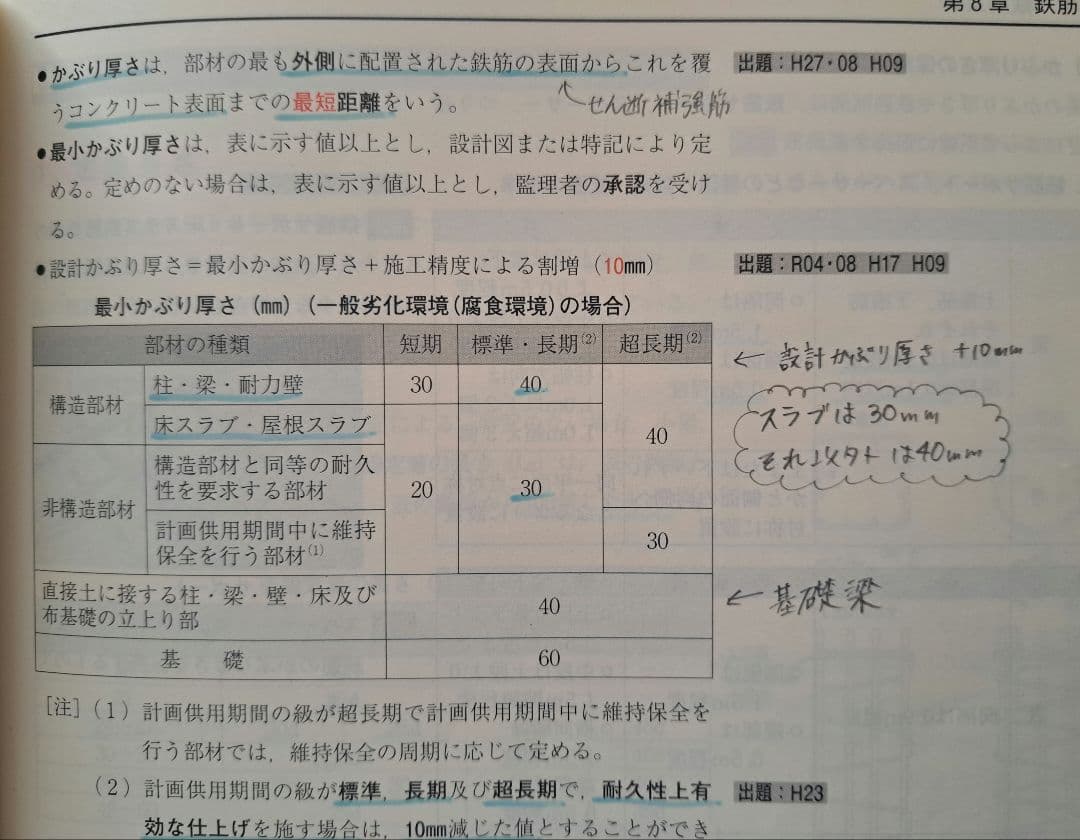 第8章 鉄筋
●かぶり厚さは，部材の最も外側に配置された鉄筋の表面からこれを覆
うコンクリート表面までの最短距離をいう。
出題：H27・08 H09
せん断補強筋
●最小かぶり厚さは，表に示す値以上とし，設計図または特記により定
める。定めのない場合は，表に示す値以上とし，監理者の承認を受け
る。
●設計かぶり厚さ＝最小かぶり厚さ＋施工精度による割増（10mm）
出題：R04・08 H17 H09
最小かぶり厚さ（mm）（一般劣化環境(腐食環境)の場合）
部材の種類 短期 標準・長期(2) 超長期(2)
構造部材 柱・梁・耐力壁 30 40
床スラブ・屋根スラブ
40
非構造部材 構造部材と同等の耐久
性を要求する部材 20 30
計画供用期間中に維持
保全を行う部材(1) 30
直接土に接する柱・梁・壁・床及び
布基礎の立上り部 40
基 礎 60
← 設計かぶり厚さ +10mm
スラブは30mm
それ以外は40mm
← 基礎梁
［注］（1）計画供用期間の級が超長期で計画供用期間中に維持保全を
行う部材では，維持保全の周期に応じて定める。
（2）計画供用期間の級が標準，長期及び超長期で，耐久性上有
出題：H23
効な仕上げを施す場合は，10mm減じた値とすることができ